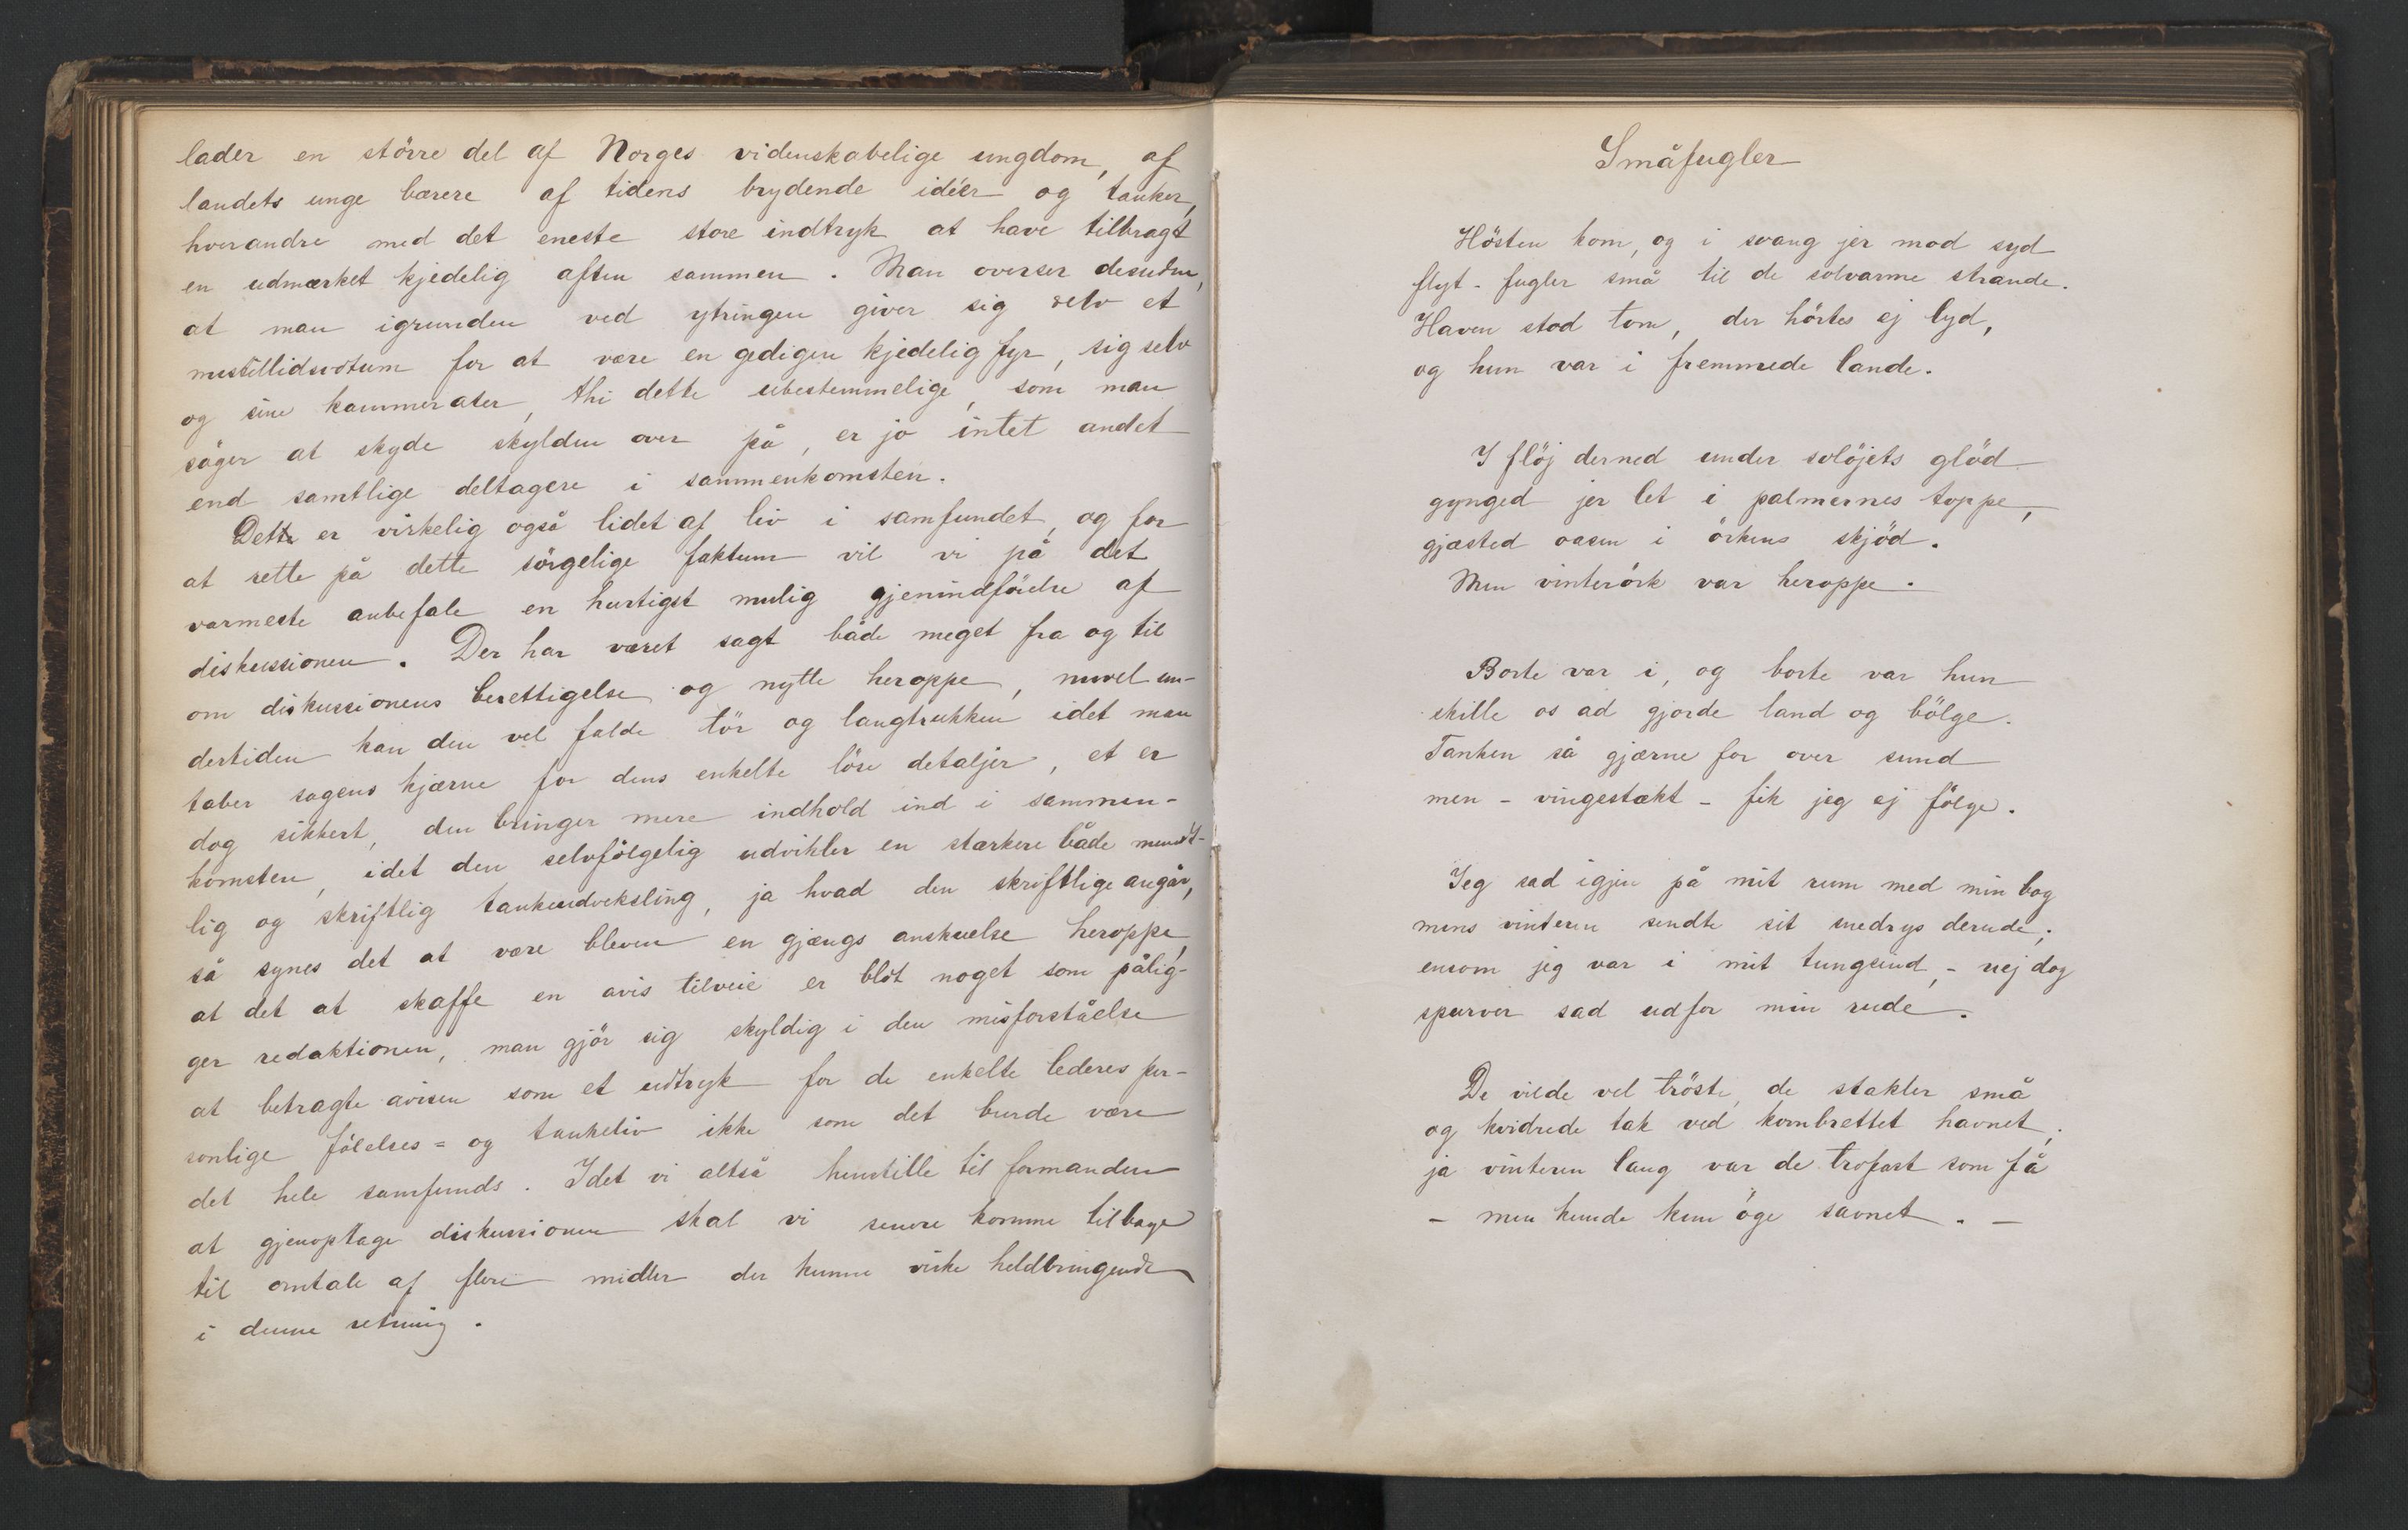 lader en större del af Norges videnskabelige ungdom, af
landets unge bærere af tidens brydende idéer og tanker,
hverandre med det eneste store indtryk at have tilbragt
en udmærket kjedelig aften sammen. Man overser desuden,
at man igrunden ved ytringen giver sig selv et
mistillidsvotum for at være en gedigen kjedelig fyr, sig selv
og sine kammerater, thi dette ubestemmelige, som man
söger at skyde skylden over på, er jo intet andet
end samtlige deltagere i sammenkomsten.
Dette er virkelig også lidet af liv i samfundet, og for
at rette på dette sörgelige faktum vil vi på det
varmeste anbefale en hurtigst mulig gjenindförelse af
diskussionen. Der har været sagt både meget fra og til
om diskussionens berettigelse og nytte heroppe, nuvel un-
dertiden kan den vel falde tör og langtrukken idet man
taber sagens kjærne for dens enkelte löse detaljer, et er
dog sikkert, den bringer mere indhold ind i sammen-
komsten, idet den selvfölgelig udvikler en stærkere både mundt-
lig og skriftlig tankeudveksling, ja hvad den skriftlige angår,
så synes det at være bleven en gjængs anskuelse heroppe,
at det at skaffe en avis tilveie er blot noget som pålig-
ger redaktionen, man gjör sig skyldig i den misforståelse
at betragte avisen som et udtryk for de enkelte lederes per-
sonlige fölelses= og tankeliv ikke som det burde være
det hele samfunds. Idet vi altså henstille til formanden
at gjenoptage diskussionen skal vi senere komme tilbage
til omtale af flere midler der kunne virke heldbringende
i denne retning.
Småfugler
Hösten kom, og i svang jer mod syd
flyt-fugler små til de solvarme strande.
Haven stod tom, der hörtes ej lyd,
og hun var i fremmede lande.
I flöj derned under solöjets glöd
gynged jer let i palmernes toppe,
gjæsted oasen i örkens skjöd.
Men vinterörk var heroppe.
Borte var i, og borte var hun
skille os ad gjorde land og bölge.
Tanken så gjærne for over sund
men - vingestækt - fik jeg ej fölge.
Jeg sad igjen på mit rum med min bog
mens vinteren sendte sit snedrys derude;
ensom jeg var i mit tungsind, - nej dog
spurver sad udfor min rude.
De vilde vel tröste, de stakler små
og kvidrede tak ved kornbrettet havnet;
ja vinteren lang var de trofast som få
- men kunde kun öge savnet. -